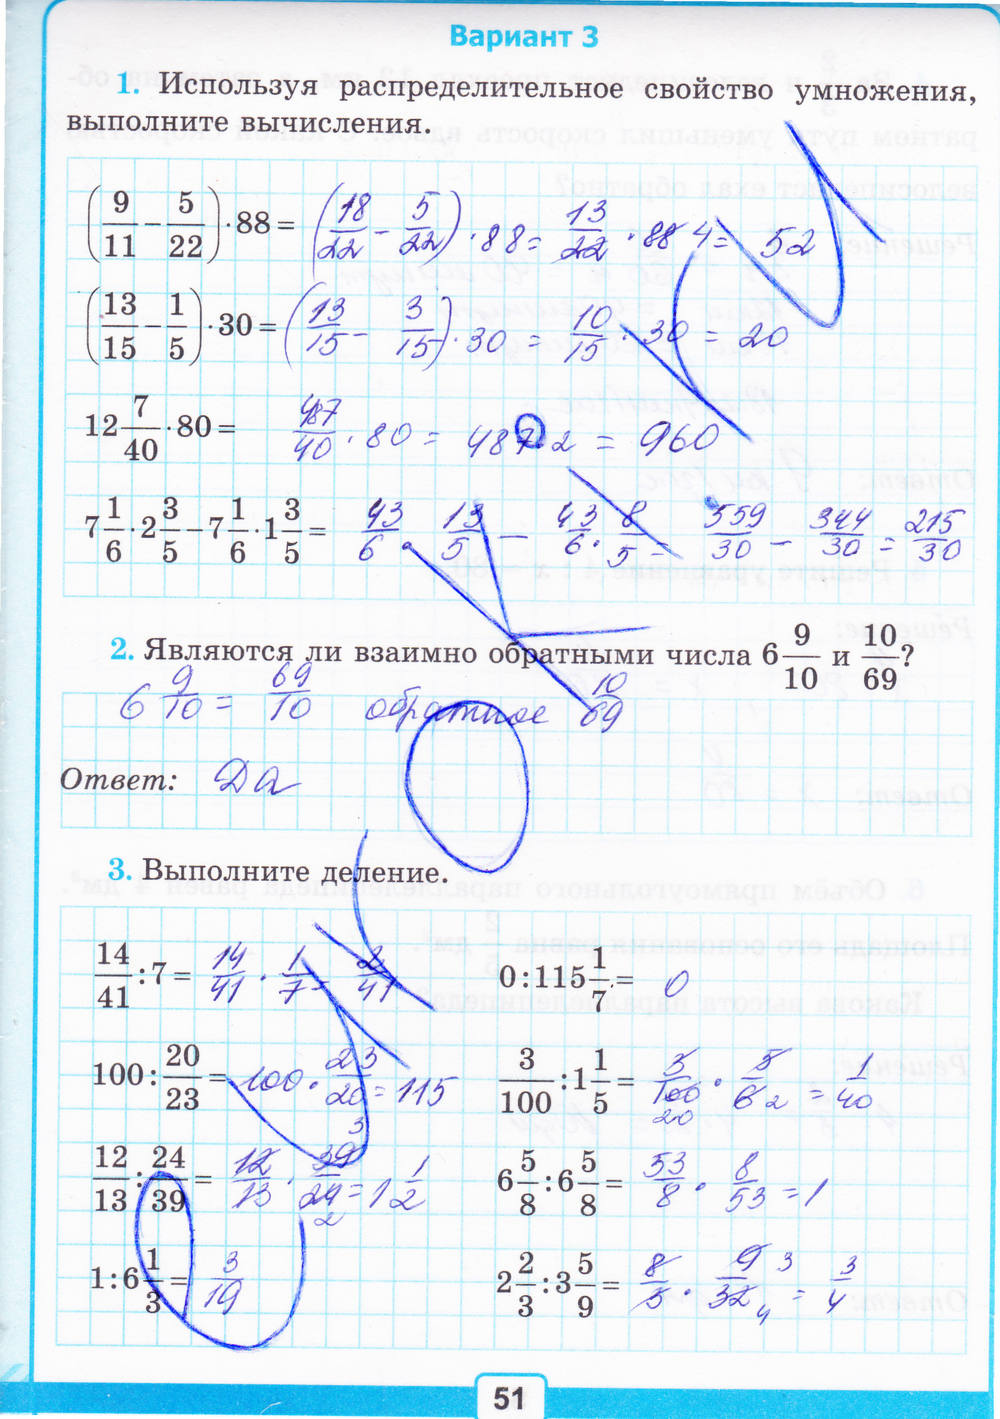 Вариант 3
1. Используя распределительное свойство умножения,
выполните вычисления.
(9/11 − 5/22) · 88 = (18/22 − 5/22) · 88 = 13/22 · 88 4 = 52
(13/15 − 1/5) · 30 = (13/15 − 3/15) · 30 = 10/15 · 30 = 20
12 7/40 · 80 = 487/40 · 80 = 487 · 2 = 960
7 1/6 · 2 3/5 − 7 1/6 · 1 3/5 = 43/6 · 13/5 − 43/6 · 8/5 = 559/30 − 344/30 = 215/30
2. Являются ли взаимно обратными числа 6 9/10 и 10/69?
6 9/10 = 69/10 обратное 10/69
Ответ: Да
3. Выполните деление.
14/41 : 7 = 14/41 · 1/7 = 2/41 0 : 115 1/7 = 0
100 : 20/23 = 100 · 23/20 = 115 3/100 : 1 1/5 = 3/100 20 · 5/6 2 = 1/40
12/13 : 24/39 = 12/13 · 39 3/24 2 = 1 1/2 6 5/8 : 6 5/8 = 53/8 · 8/53 = 1
1 : 6 1/3 = 3/19 2 2/3 : 3 5/9 = 8/3 · 9 3/32 4 = 3/4
51